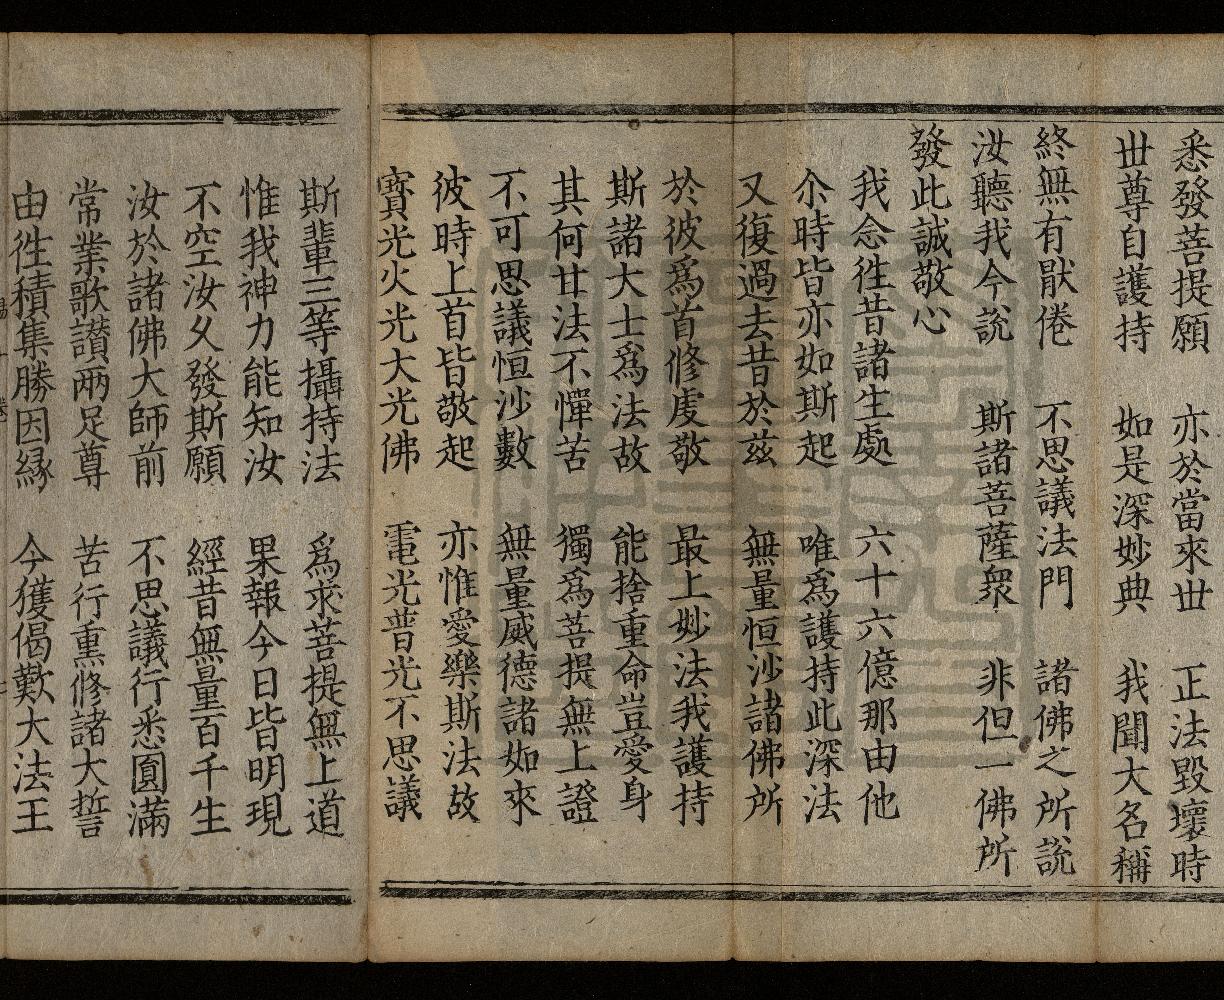 悉發菩提願　亦於當來丗　正法毀壞時
丗尊自護持　如是深妙典　我聞大名稱
終無有猒倦　不思議法門　諸佛之所說
汝聽我今說　斯諸菩薩衆　非但一佛所
發此誠敬心
我念徃昔諸生處　六十六億那由他
尒時皆亦如斯起　唯爲護持此深法
又復過去昔於兹　無量恒沙諸佛所
於彼爲首修虔敬　最上妙法我護持
斯諸大士爲法故　能捨重命豈愛身
其何甘法不憚苦　獨爲菩提無上證
不可思議恒沙數　無量威德諸如來
彼時上首皆敬起　亦惟愛樂斯法故
寶光火光大光佛　電光普光不思議
斯輩三等攝持法　爲求菩提無上道
惟我神力能知汝　果報今日皆明現
不空汝久發斯願　經昔無量百千生
汝於諸佛大師前　不思議行悉圓滿
常業歌讃兩足尊　苦行熏修諸大誓
由徃積集勝因緣　今獲偈歎大法王